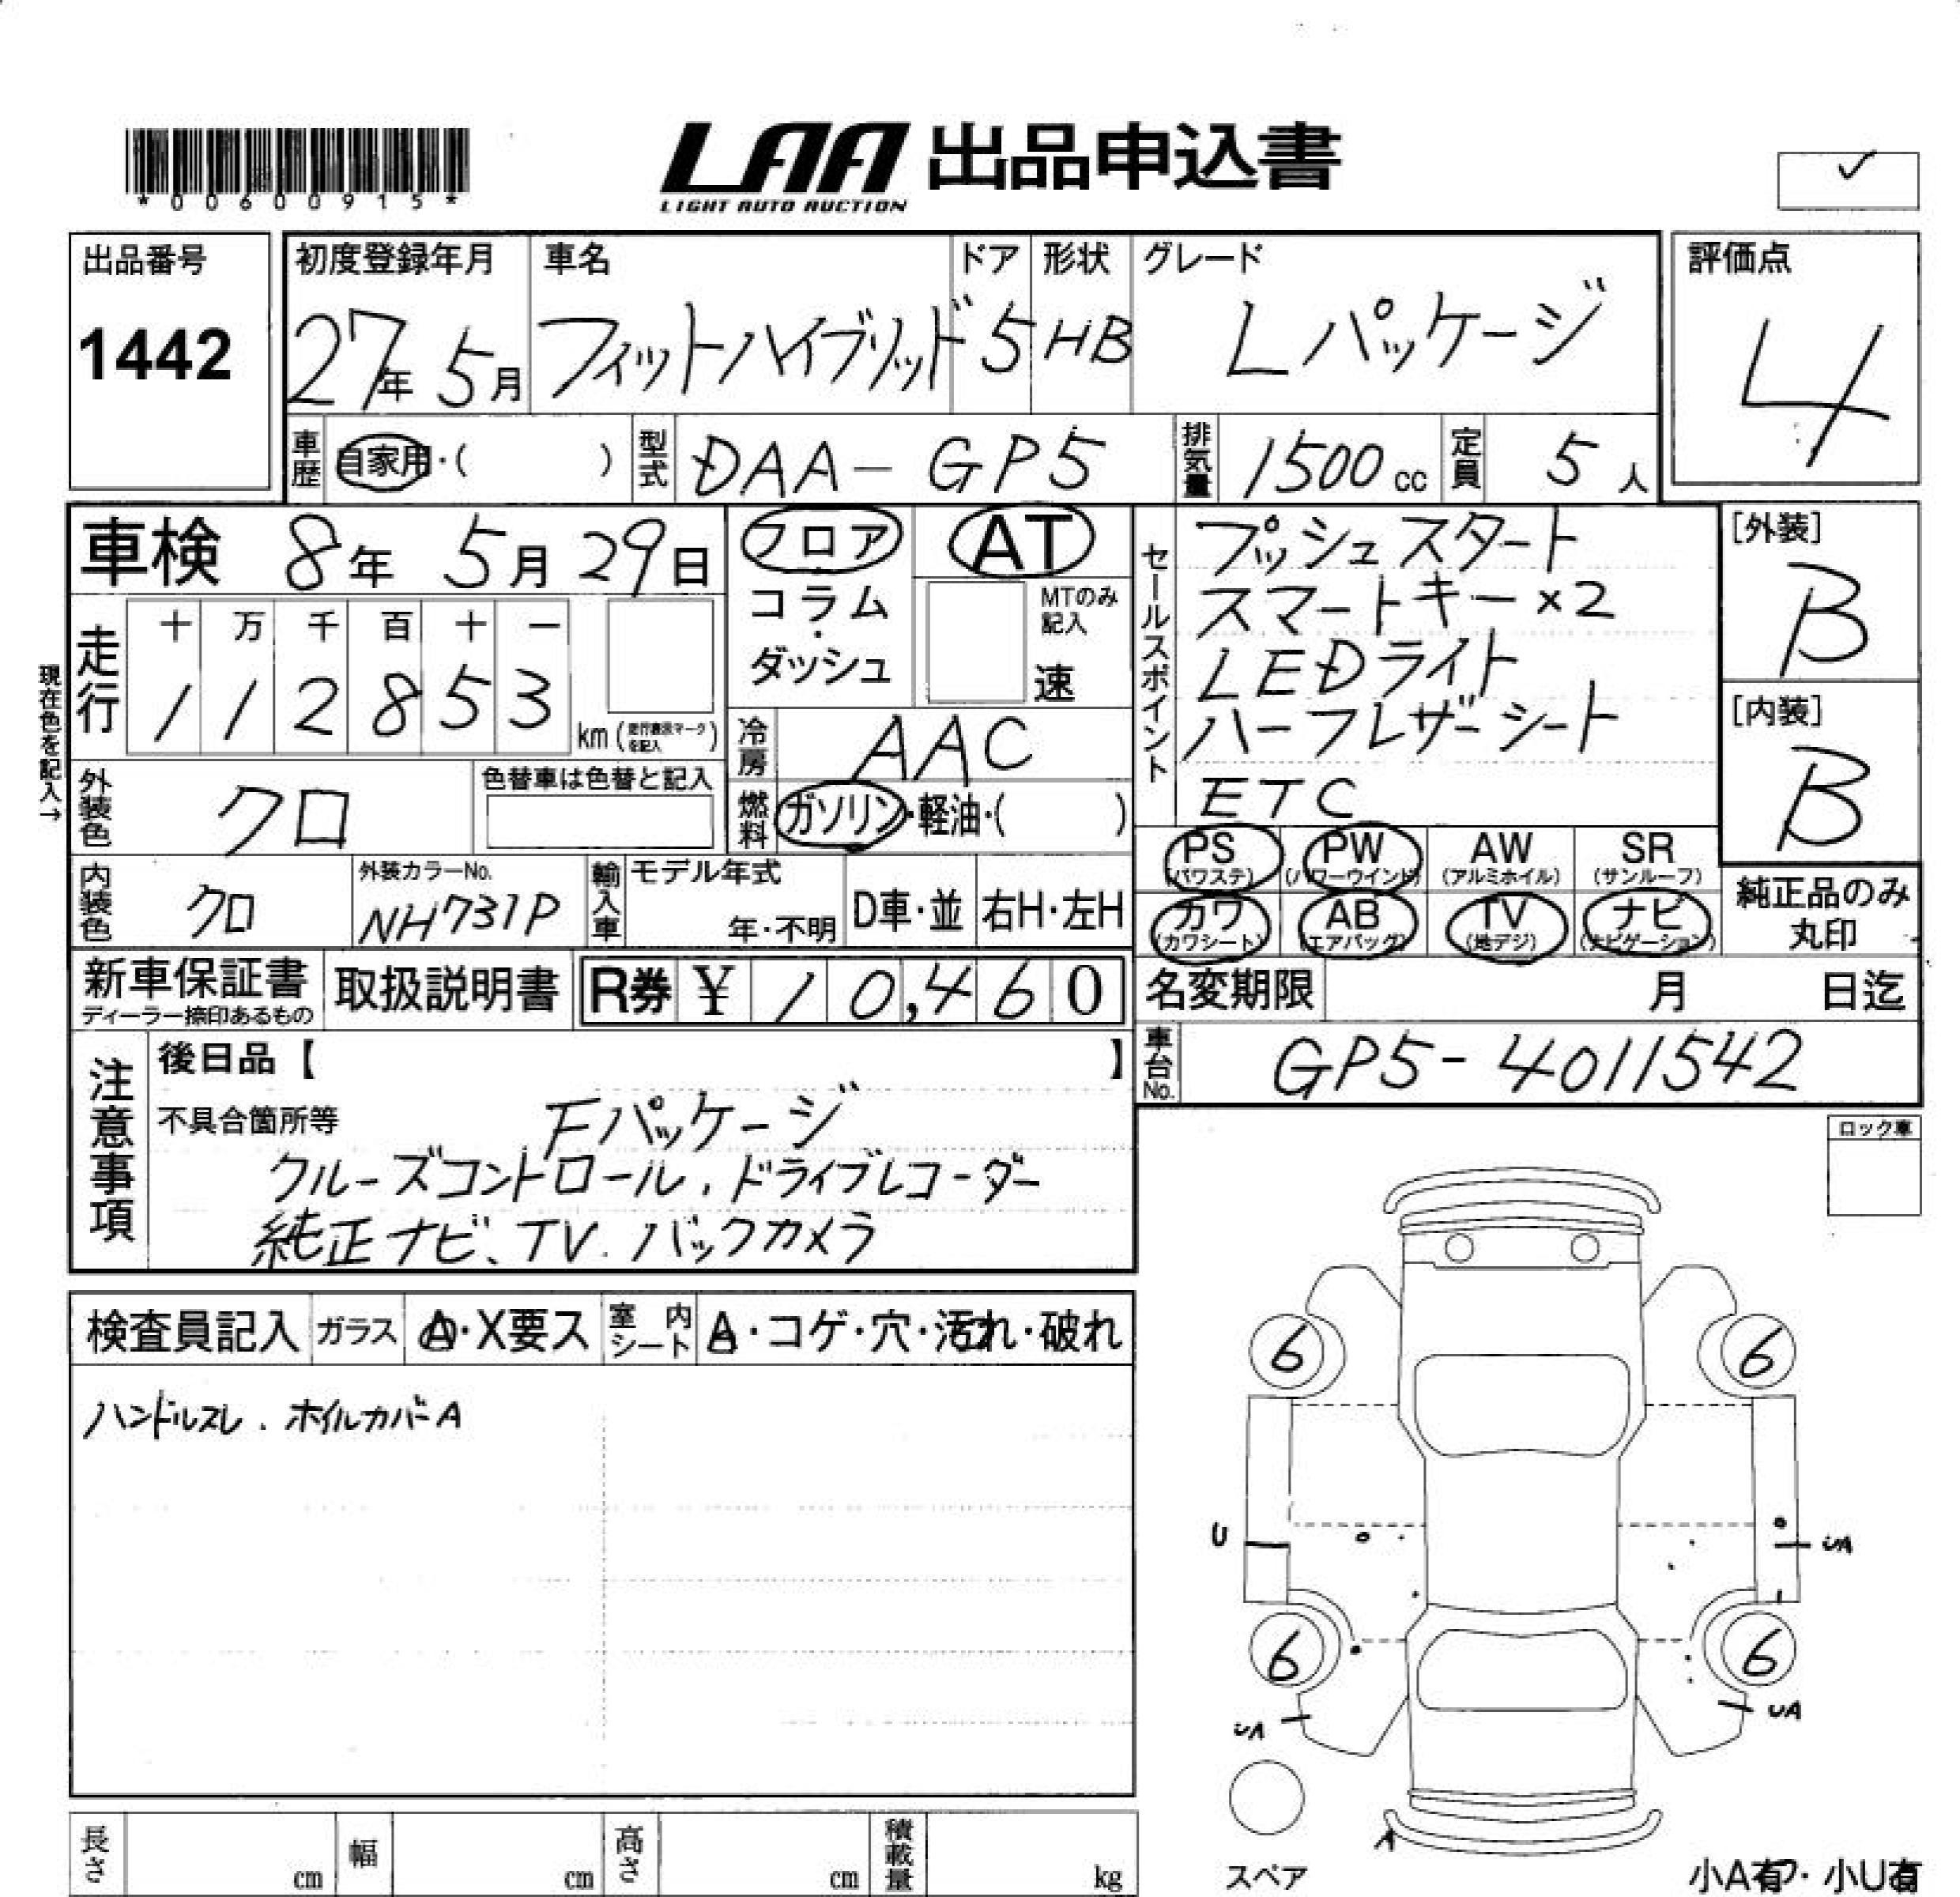 *00600915*
LAA 出品申込書
LIGHT AUTO AUCTION
✓
出品番号
1442
初度登録年月
27年 5月
車名
フィットハイブリッド
ドア
5
形状
HB
グレード
Lパッケージ
評価点
4
車歴
自家用・( )
型式
DAA-GP5
排気量
1500cc
定員
5人
車検 8年 5月 29日
走行
十 万 千 百 十 一
1 1 2 8 5 3
km(走行表示マークを記入)
現在色を記入→
外装色
クロ
色替車は色替と記入
内装色
クロ
外装カラーNo.
NH731P
フロア・コラム・ダッシュ
AT
MTのみ記入
速
冷房
AAC
燃料
ガソリン・軽油・( )
輸入車
モデル年式
年・不明
D車・並
右H・左H
セールスポイント
プッシュスタート
スマートキー×2
LEDライト
ハーフレザーシート
ETC
[外装]
B
[内装]
B
PS (パワステ) PW (パワーウインド) AW (アルミホイル) SR (サンルーフ)
カワ (カワシート) AB (エアバッグ) TV (地デジ) ナビ (ナビゲーション)
純正品のみ丸印
新車保証書
ディーラー捺印あるもの
取扱説明書
R券 ¥10,460
名変期限 月 日迄
車台No.
GP5-4011542
注意事項
後日品【 】
不具合箇所等
Fパッケージ
クルーズコントロール、ドライブレコーダー
純正ナビ、TV、バックカメラ
ロック車
検査員記入
ガラス
A・X要ス
室内シート
A・コゲ・穴・汚れ・破れ
ハンドルスレ、ホイルカバーA
6 6
U
UA
6 6
UA
UA
A
スペア
小A有・小U有
長さ cm
幅 cm
高さ cm
積載量 kg